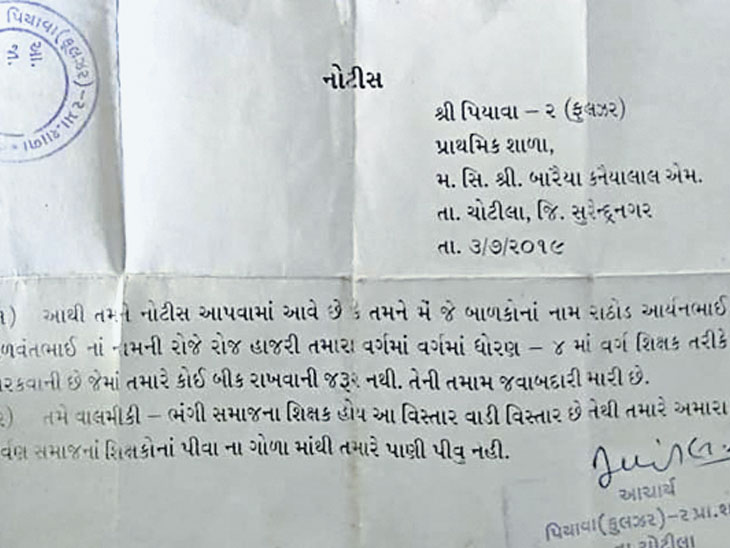 પિયાવા(ફુલઝર)-૨ પ્રા.શાળા
નોટીસ
શ્રી પિયાવા – ૨ (ફુલઝર)
પ્રાથમિક શાળા,
મ. સિ. શ્રી. બારૈયા કનૈયાલાલ એમ.
તા. ચોટીલા, જિ. સુરેન્દ્રનગર
તા. ૩/૭/૨૦૧૯
૧) આથી તમને નોટીસ આપવામાં આવે છે કે તમને મેં જે બાળકોનાં નામ રાઠોડ આર્યનભાઈ
ળવંતભાઈ નાં નામની રોજે રોજ હાજરી તમારા વર્ગમાં વર્ગમાં ધોરણ – ૪ માં વર્ગ શિક્ષક તરીકે
રકવાની છે જેમાં તમારે કોઈ બીક રાખવાની જરૂર નથી. તેની તમામ જવાબદારી મારી છે.
૨) તમે વાલમીકી – ભંગી સમાજના શિક્ષક હોય આ વિસ્તાર વાડી વિસ્તાર છે તેથી તમારે અમારા
ર્વણ સમાજનાં શિક્ષકોનાં પીવા ના ગોળા માંથી તમારે પાણી પીવુ નહી.
આચાર્ય
પિયાવા(ફુલઝર)-૨ પ્રા.શા
તા ચોટીલા